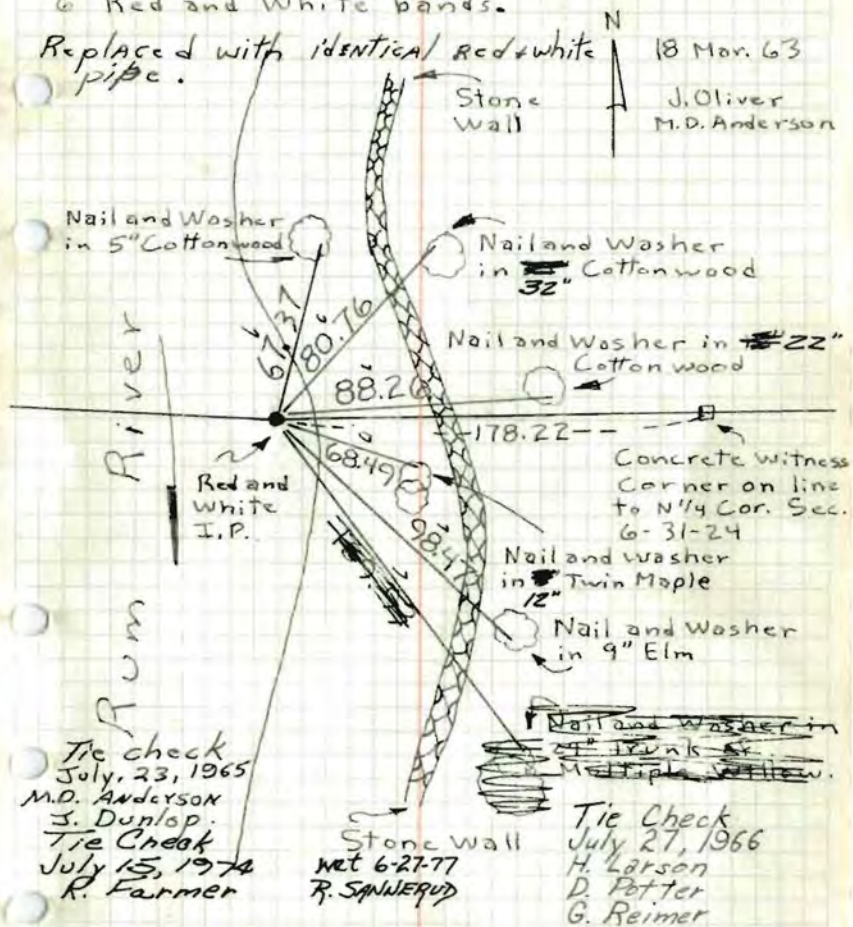 6 Red and White bands.
Replaced with identical Red & white
pipe.
N
18 Mar. 63
J. Oliver
M.D. Anderson
Stone
Wall
Nail and Washer
in 5" Cottonwood
Nail and Washer
in 32" Cottonwood
67.37'
80.76'
Nail and Washer in 22"
Cottonwood
88.26'
178.22
River
Red and
White
I.P.
68.49'
98.47'
Concrete Witness
Corner on line
to N 1/4 Cor. Sec.
6-31-24
Nail and Washer
in 12" Twin Maple
Nail and Washer
in 9" Elm
Rum
Nail and Washer in
Trunk
Multiple Willow.
Tie check
July, 23, 1965
M.D. Anderson
J. Dunlop.
Tie Check
July 15, 1974
R. Farmer
Stone Wall
6-27-77
R. SANNERUD
Tie Check
July 27, 1966
H. Larson
D. Potter
G. Reimer